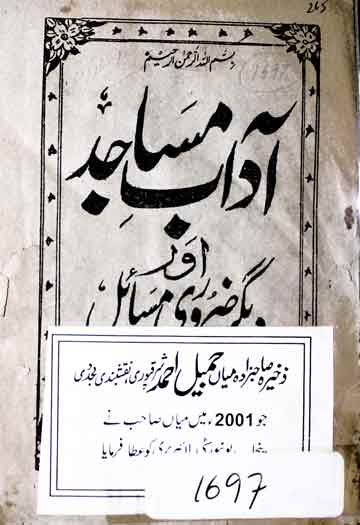 265
بسم اللہ الرحمن الرحیم
1697
آداب مساجد
اور
دیگر ضروری مسائل
ذخیرہ صاحبزادہ میاں جمیل احمد شرقپوری نقشبندی مجددی
جو 2001ء میں میاں صاحب نے
پنجاب یونیورسٹی لائبریری کو عطا فرمایا
1697